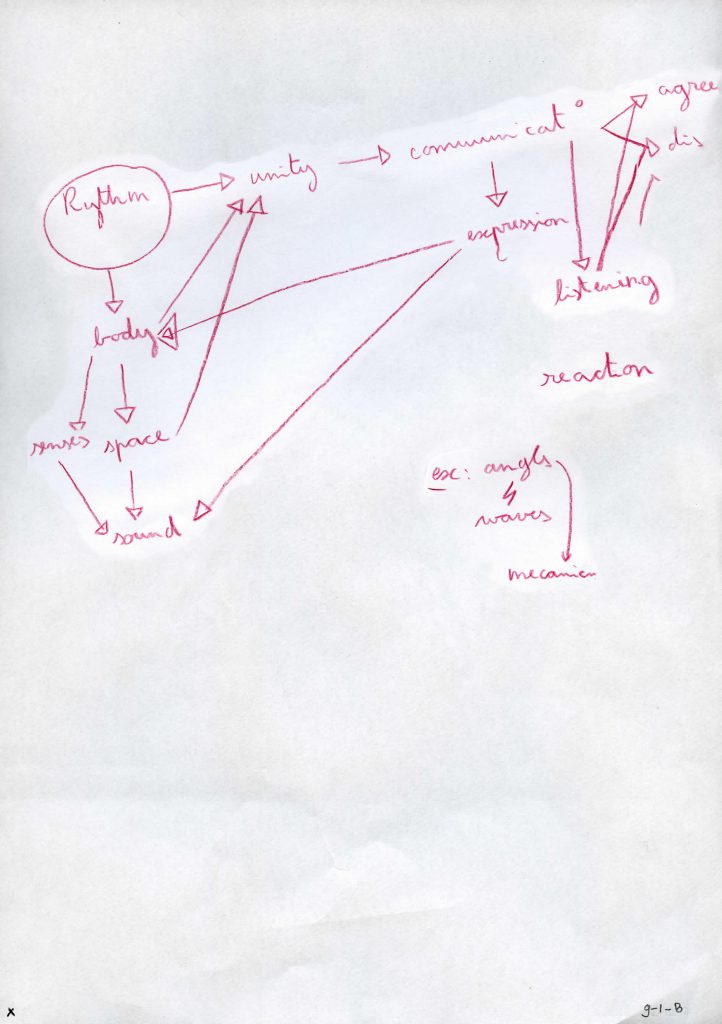 agree
communicat°
dis
Rythm
unity
expression
listening
body
reaction
senses space
exc: angls
waves
sound
mecanicn
x
9-1-B